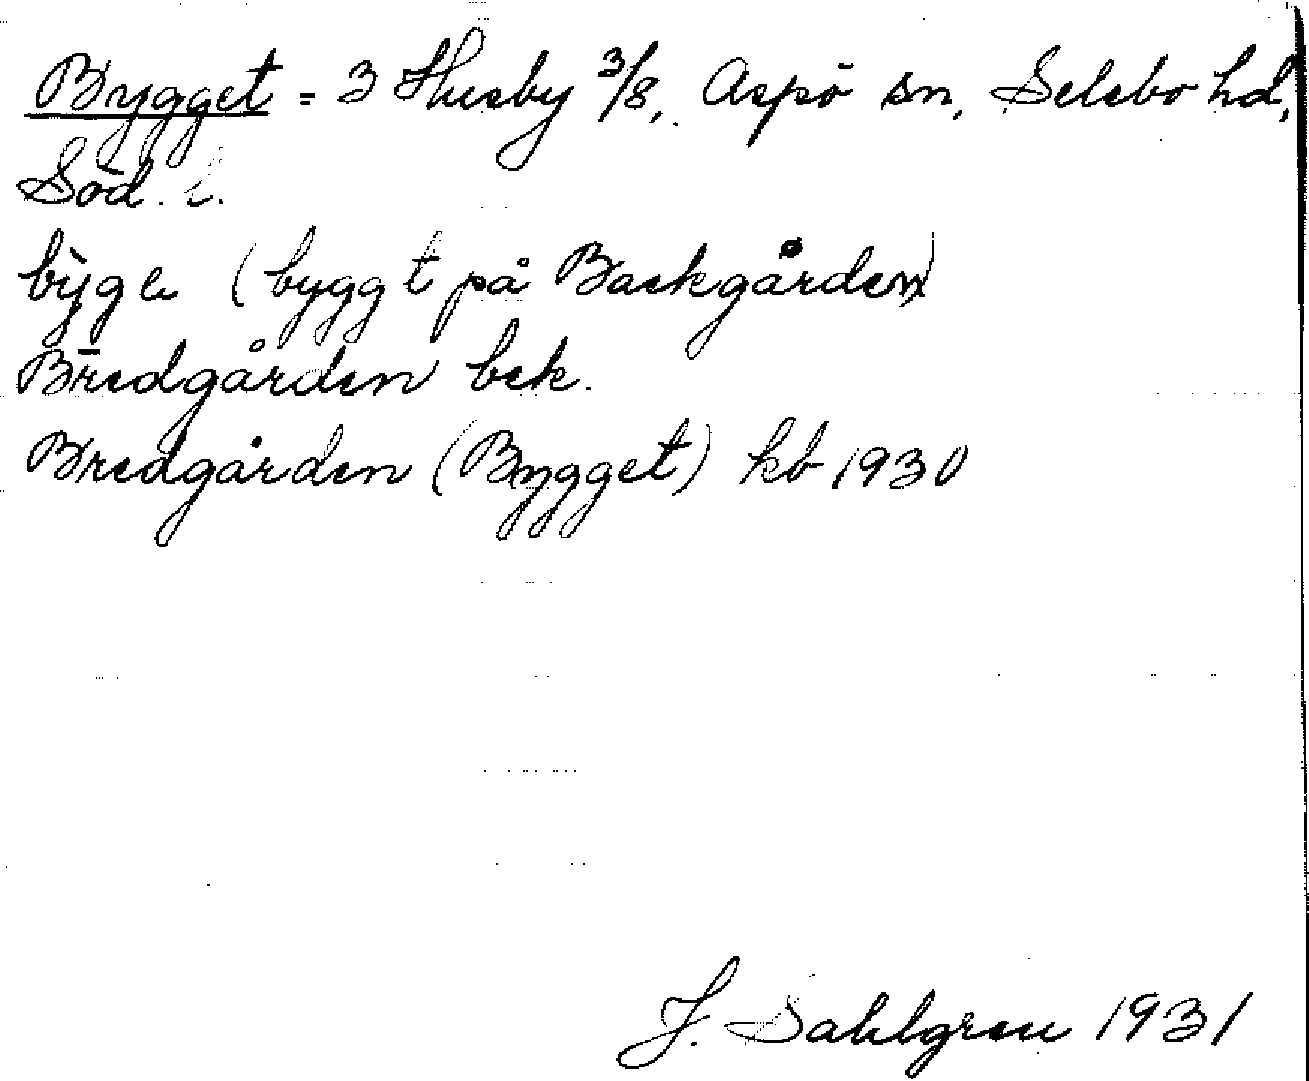 Bygget = 3 Husby 3/8, Aspö sn, Selebo hd,
Söd. l.
bỳge (byggt på Backgården)
Bredgården bek.
Bredgården (Bygget) kb 1930
J. Sahlgren 1931